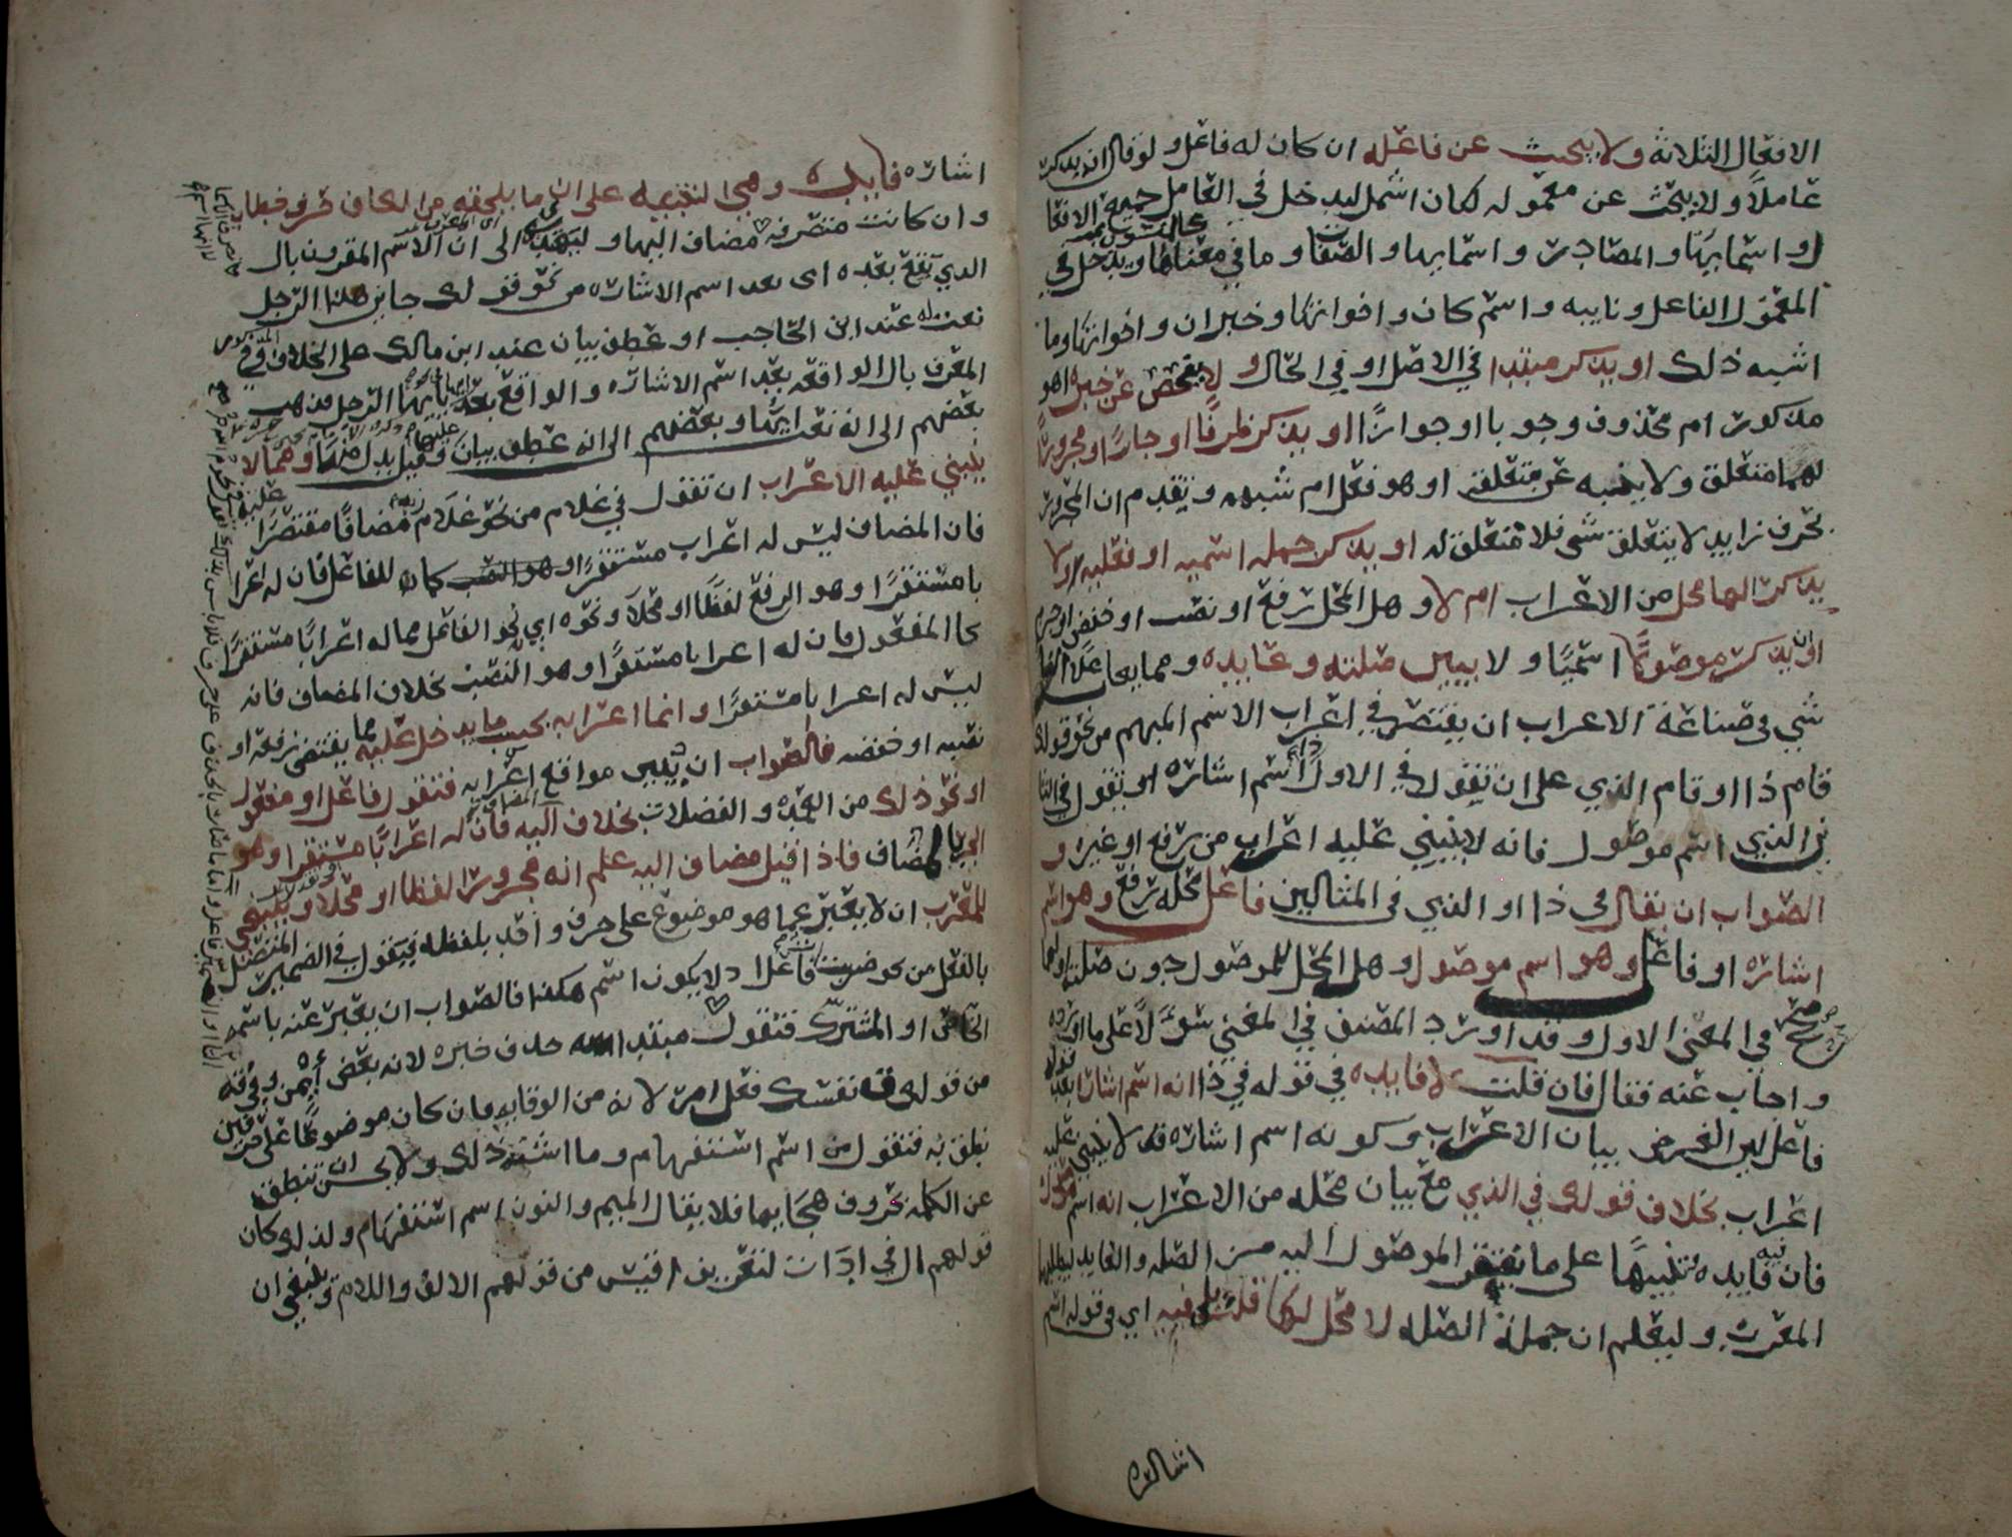 الافعال الثلاثة ولا يبحث عن فاعله ان كان له فاعل ولو قال ان يذكر
عاملا ولا يبحث عن معموله لكان اشمل ليدخل في العامل جميع الافعا
ل واسمايها والمصادر واسمايها والصفات وما في معناها ويدخل في
المعمول الفاعل ونايبه واسم كان واخواتها وخبر ان واخواتها وما
اشبه ذلك او يذكر مبتدا في الاصل او في الحال ولا يفحص عن خبره اهو
مذكور ام محذوف وجوبا او جوازا او يذكر ظرفا او جارا ومجرورا
لهما متعلق ولا ينبه عن متعلقه اوهو فعل ام شبهه وتقدم ان المجرور
بحرف زايد لا يتعلق بشي فلا متعلق له او يذكر جمله اسميه او فعليه ولا
يذكر الها محل من الاعراب ام لا وهل المحل رفع او نصب او خفض او جزم
او ان يذكر موصولا اسميا ولا يبين صلته وعايده ومما يعاب على النا
شي في صناعة الاعراب ان يقتصر في اعراب الاسم المبهم من نحو قولك
قام ذا او قام الذي على ان يقول في الاول ذا اسم اشاره او يقول في الثا
ني الذي اسم موصول فانه لا ينبني عليه اعراب من رفع او غيره و
الصواب ان يقال في ذا او الذي في المثالين فاعل محله رفع وهو اسم
اشاره او فاعل وهو اسم موصول وهل المحل للموصول دون صلته او لهما
صحح في المغني الاول وقد اورد المصنف في المغني سؤلا على ما اورده
واجاب عنه فقال فان قلت لا فايده في قوله في ذا انه اسم اشارة بعد قوله
فاعل لان الغرض بيان الاعراب وكونه اسم اشاره قد لا ينبني عليه
اعراب بخلاف قولك في الذي مع بيان محله من الاعراب انه اسم موصول
فان فيه فايده تنبيها على ما يفتقر الموصول اليه من الصله والعايد ليطلبها
المعرب وليعلم ان جملة الصله لا محل لها قلت بلى فيه اي في قوله اسم
اشاره
اشاره فايده وهي التنبيه على ان ما يلحقه من الكاف حرف خطاب
وان كانت متصرفه مضاف اليها وليهتدي الى ان الاسم المقرون بال
الذي يقع بعده اي بعد اسم الاشاره من نحو قولك جاني هذا الرجل
نعت له عند ابن الحاجب او عطف بيان عند ابن مالك على الخلاف في
المعرف بال الواقعه بعد اسم الاشاره والواقع بعد ايها في نحو يا ايها الرجل فذهب
بعضهم الى انه نعت ايضا وبعضهم الى انه عطف بيان عليهما وقيل بدل منها ومما لا
ينبني عليه الاعراب ان تقول في غلام من نحو غلام زيد مضافا مقتصرا عليه
فان المضاف ليس له اعراب مستقر كما للفاعل فان له اعرا
با مستقرا وهو الرفع لفظا او محلا ونحوه اي نحو الفاعل مما له اعرابا مستقرا
كالمفعول فان له اعرابا مستقرا وهو النصب بخلاف المضاف فانه
ليس له اعرابا مستقرا وانما اعرابه بحسب ما يدخل عليه مما يقتضي رفعه او
نصبه او خفضه فالصواب ان يبين مواقع اعرابه فتقول فاعل او مفعول
او نحو ذلك من العمده والفضلات بخلاف المضاف اليه فان له اعرابا مستقرا وهو
الجر بالمضاف فاذا قيل مضاف اليه علم انه مجرور لفظا او محلا وينبغي
للمعرب ان لا يعبر عما هو موضوع على حرف واحد بلفظه فيقول في الضمير المتصل
بالفعل من نحو ضربت ت فاعل اذ لا يكون اسم هكذا فالصواب ان يعبر عنه باسمه
الخاص او المشترك فتقول مبتدا حذف خبره لانه بعض ايمن وفي ق
من قولك ق نفسك فعل امر لانه من الوقايه فان كان موضوعا على حرفين
نطق به فتقول من اسم استفهام وما اشبه ذلك ولا يحسن ان تنطق
عن الكلمه بحروف هجايها فلا يقال الميم والنون اسم استفهام ولذلك كان
قولهم ال في اداة لتعريف اقيس من قولهم الالف واللام وينبغي ان